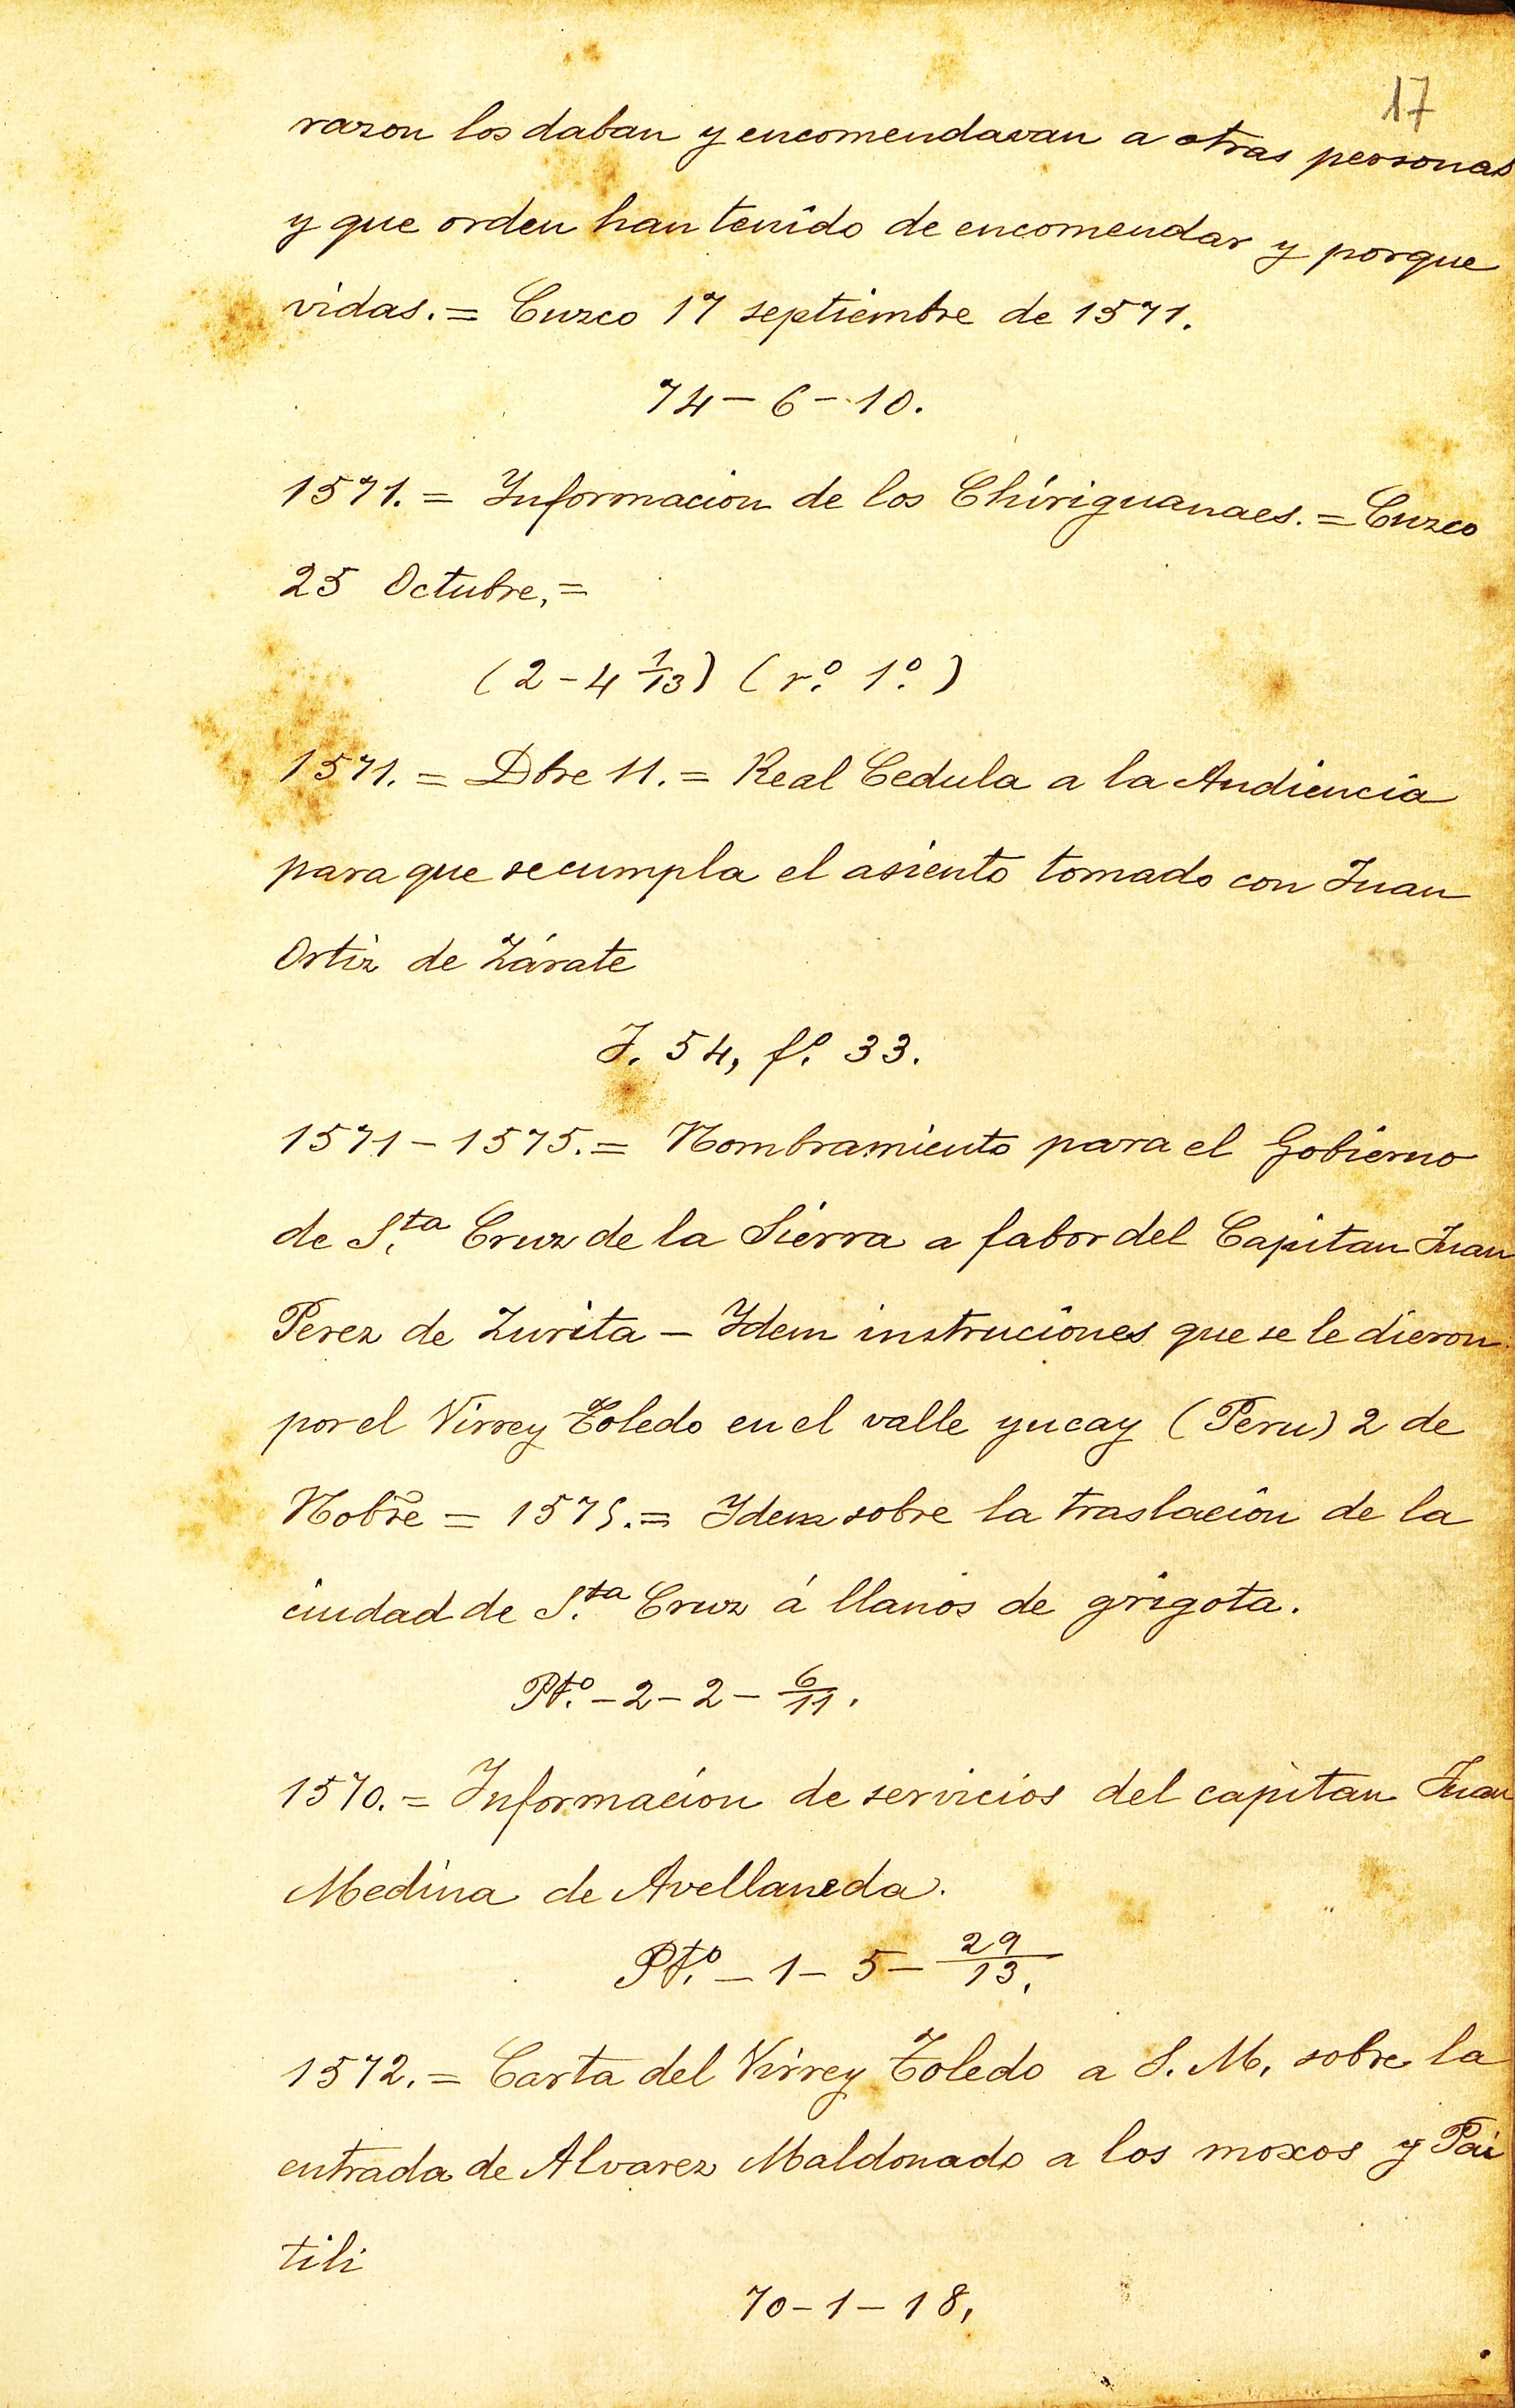 17
razon los daban y encomendavan a otras personas
y que orden han tenido de encomendar y porque
vidas. = Cuzco 17 septiembre de 1571.
74 - 6 - 10.
1571. = Informacion de los Chiriguanaes. = Cuzco
25 Octubre. =
(2 - 4 1/13) (r.º 1.º)
1571. = Dbre 11. = Real Cedula a la Audiencia
para que se cumpla el asiento tomado con Juan
Ortiz de Zárate
J. 54, f.º 33.
1571 - 1575. = Nombramiento para el Gobierno
de S.ta Cruz de la Sierra a fabor del Capitan Juan
Perez de Zurita - Idem instruciones que se le dieron
por el Virrey Toledo en el valle yucay (Peru) 2 de
Nobre = 1575. = Idem sobre la traslacion de la
ciudad de S.ta Cruz á llanos de grigota.
Pt.º - 2 - 2 - 6/11.
1570. = Informacion de servicios del capitan Juan
Medina de Avellaneda.
Pt.º - 1 - 5 - 29/13.
1572. = Carta del Virrey Toledo a S. M. sobre la
entrada de Alvarez Maldonado a los moxos y Pai
tili
70 - 1 - 18.